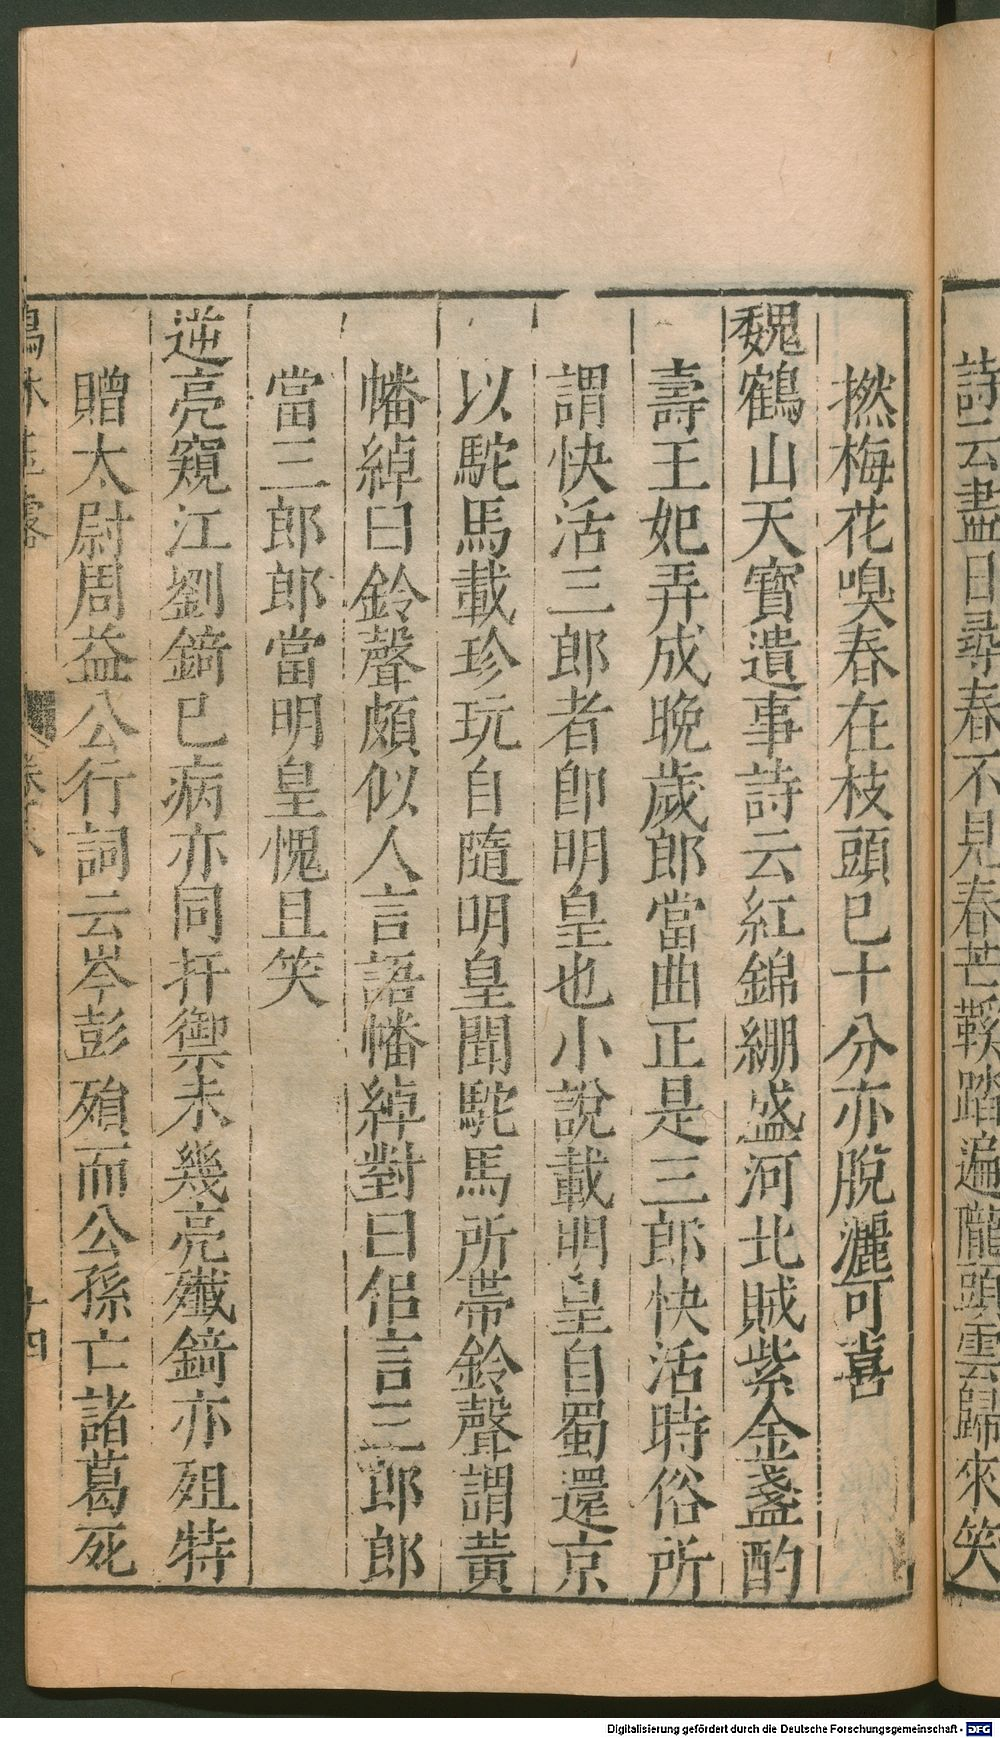 詩云盡日尋春不見春芒鞵踏遍隴頭雲歸來笑
撚梅花嗅春在枝頭已十分亦脫灑可喜
魏鶴山天寶遺事詩云紅錦綳盛河北賊紫金盞酌
壽王妃弄成晚歲郎當曲正是三郎快活時俗所
謂快活三郎者卽明皇也小說載明皇自蜀還京
以駝馬載珍玩自隨明皇聞駝馬所帶鈴聲謂黃
幡綽曰鈴聲頗似人言語幡綽對曰佀言三郎郎
當三郎郎當明皇愧且笑
逆亮窺江劉錡已病亦同扞禦未幾亮殲錡亦殂特
贈太尉周益公行詞云岑彭殞而公孫亡諸葛死
玉露
十四
Digitalisierung gefördert durch die Deutsche Forschungsgemeinschaft - DFG